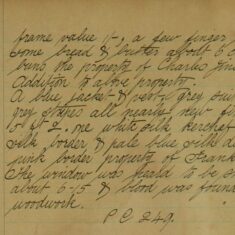 frame value 1/-. a few finger
some bread & butter about 6 o
buns the property of Charles
Addition to above property.
A blue jacket & vest, grey
grey stripes all nearly new
5 ft 2. one white silk kerchief
silk border & pale blue silk
pink border property of Frank
The window was heard to be
about 6-15 & blood was found
woodwork.
P C 249.